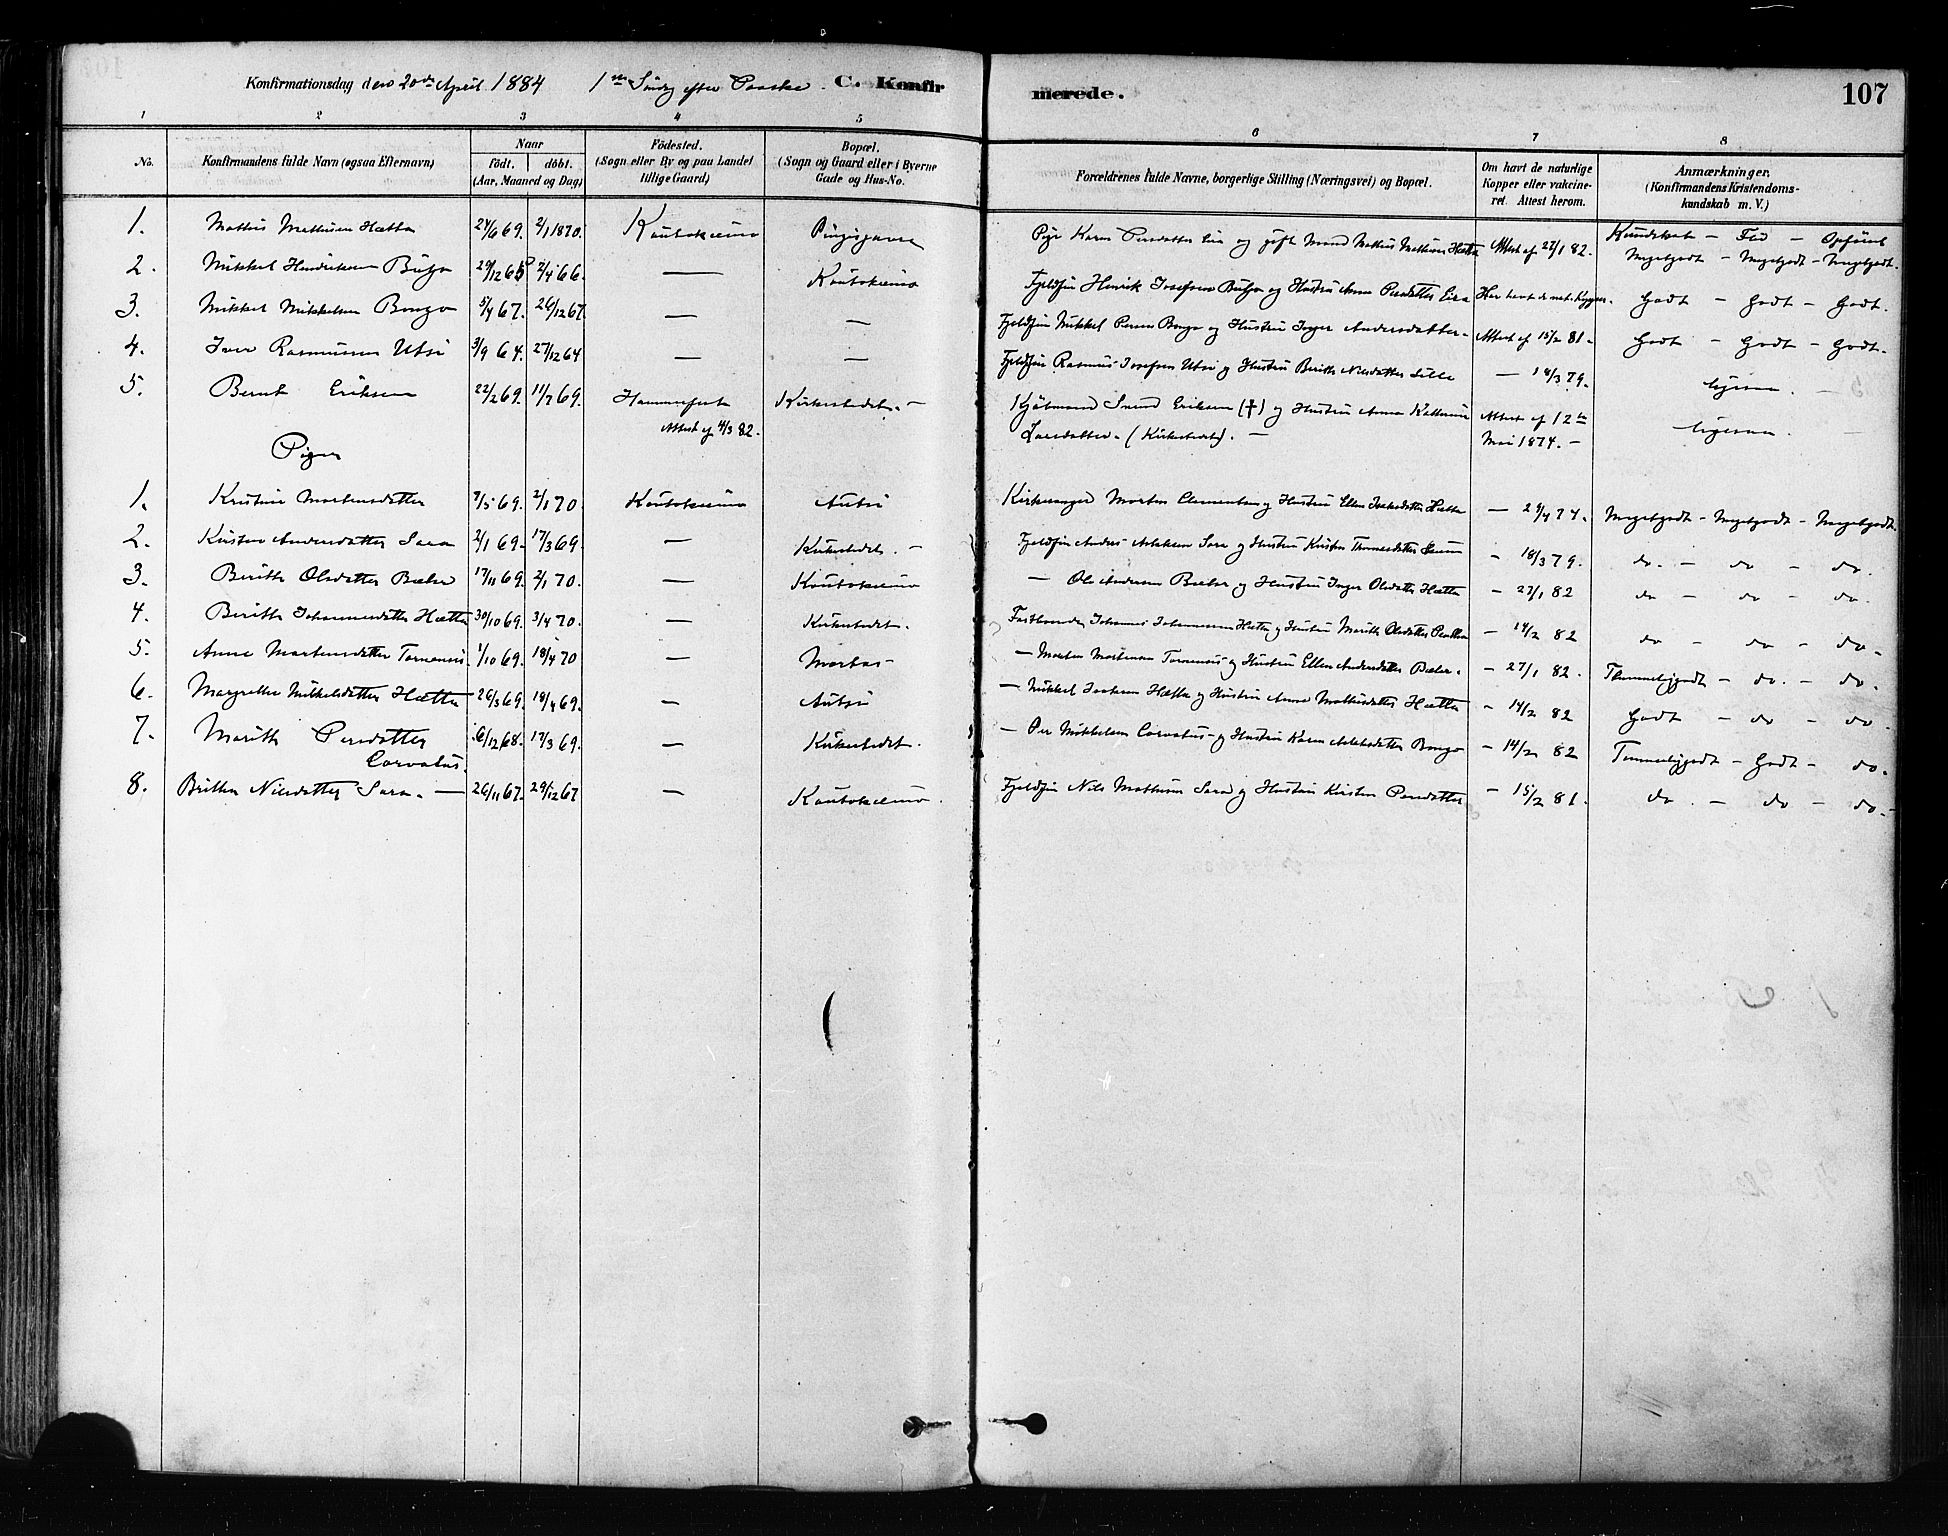 Konfirmationsdag den 20de April 1884 1ste Søndg efter Paaske. C. Konfir merede. 107
1 2 3 4 5 6 7 8
No. Konfirmandens fulde Navn (ogsaa Efternavn) Naar født. døbt. (Aar, Maaned og Dag) Fødested. (Sogn eller By og paa Landet tillige Gaard) Bopæl. (Sogn og Gaard eller i Byerne Gade og Hus-No. Forældrenes fulde Navne, borgerlige Stilling (Næringsvei) og Bopæl. Om havt de naturlige Kopper eller vakcineret. Attest herom. Anmærkninger. (Konfirmandens Kristendomskundskab m. V.)
Kundskab – Flid – Opførsel
1. Mathis Mathisen Hætta 24/6 69. 2/1 1870. Kautokeino Pige Karen Persdatter Eira og gift Mand Mathis Mathisen Hætta Attest af 27/1 82. Megetgodt – Megetgodt – Megetgodt.
2. Mikkel Henriksen Buljo 29/12 65 2/4 66. — Kautokeino Fjeldfin Henrik Josefsen Buljo og Hustru Anne Persdatter Eira Har havt de nat. Kopper. Godt – Godt – Godt.
3. Mikkel Mikkelsen Bongo 5/4 67. 26/12 67. — — Fjeldfin Mikkel Persen Bongo og Hustru Inger Andersdatter – Attest af 15/2 81 – Godt – Godt – Godt.
4. Iver Rasmussen Utsi 3/9 64. 27/12 64 — — Fjeldfin Rasmus Josefsen Utsi og Hustru Berith Nilsdatter — 14/3 79. ligesaa. —
5. Bernt Eriksen 22/2 69. 11/7 69. Hammerfest Kirkestedet. – Eriksen (†) og Hustru Anna Kathrine Attest af 12te ligesaa. —
Attest af 4/3 82. Larsdatter. (Kirkestedet). — Mai 1874. –
Piger
1. Kristine Mortensdatter 7/5 69. 2/1 70. Kautokeino Autsi Kirkesanger Morten Clementsen og Hustru Ellen Isaksdatter Hætta — 24/4 74. Megetgodt – Megetgodt – Megetgodt.
2. Kirsten Andersdatter Sara 2/1 69. 17/3 69. — Kirkestedet. – Fjeldfin Anders Aslaksen Sara og Hustru Kirsten Thomesdatter – 18/3 79. do. – do – do.
3. Berith Olsdatter Bæhr 17/11 69. 2/1 70. — Kautokeino — Ole Andersen Bæhr og Hustru Inger Olsdatter Hætta – 27/1 82 do – do – do.
4. Berith Johannesdatter Hætta 30/10 69. 3/4 70. — Kirkestedet. Fastboende Johannes Johannesen Hætta og Hustru Marith Olsdatter — 14/2 82 do – do – do.
5. Anne Mortensdatter Tornensis. 1/10 69. 18/4 70 — – Morten Mortensen Tornensis og Hustru Ellen Andersdatter Bæhr. – 27/1 82. Temmeliggodt – do. – do.
6. Margrethe Mikkelsdatter Hætta 26/3 69. 18/4 69. — Autsi – Mikkel Isaksen Hætta og Hustru Anne Mathisdatter Hætta – 14/2 82 Godt – do – do.
7. Marith Persdatter 6/12 68. 17/3 69. — Kirkestedet. – Per Mikkelsen Corvatus – og Hustru Karen Aslaksdatter Bongo – 14/2 82 Temmeliggodt – Godt – do.
Corvatus.
8. Britha Nilsdatter Sara. — 26/11 67. 29/12 67 — Kautokeino. Fjeldfin Nils Mathisen Sara og Hustru Kirsten Persdatter – 15/2 81. do. – do – do.